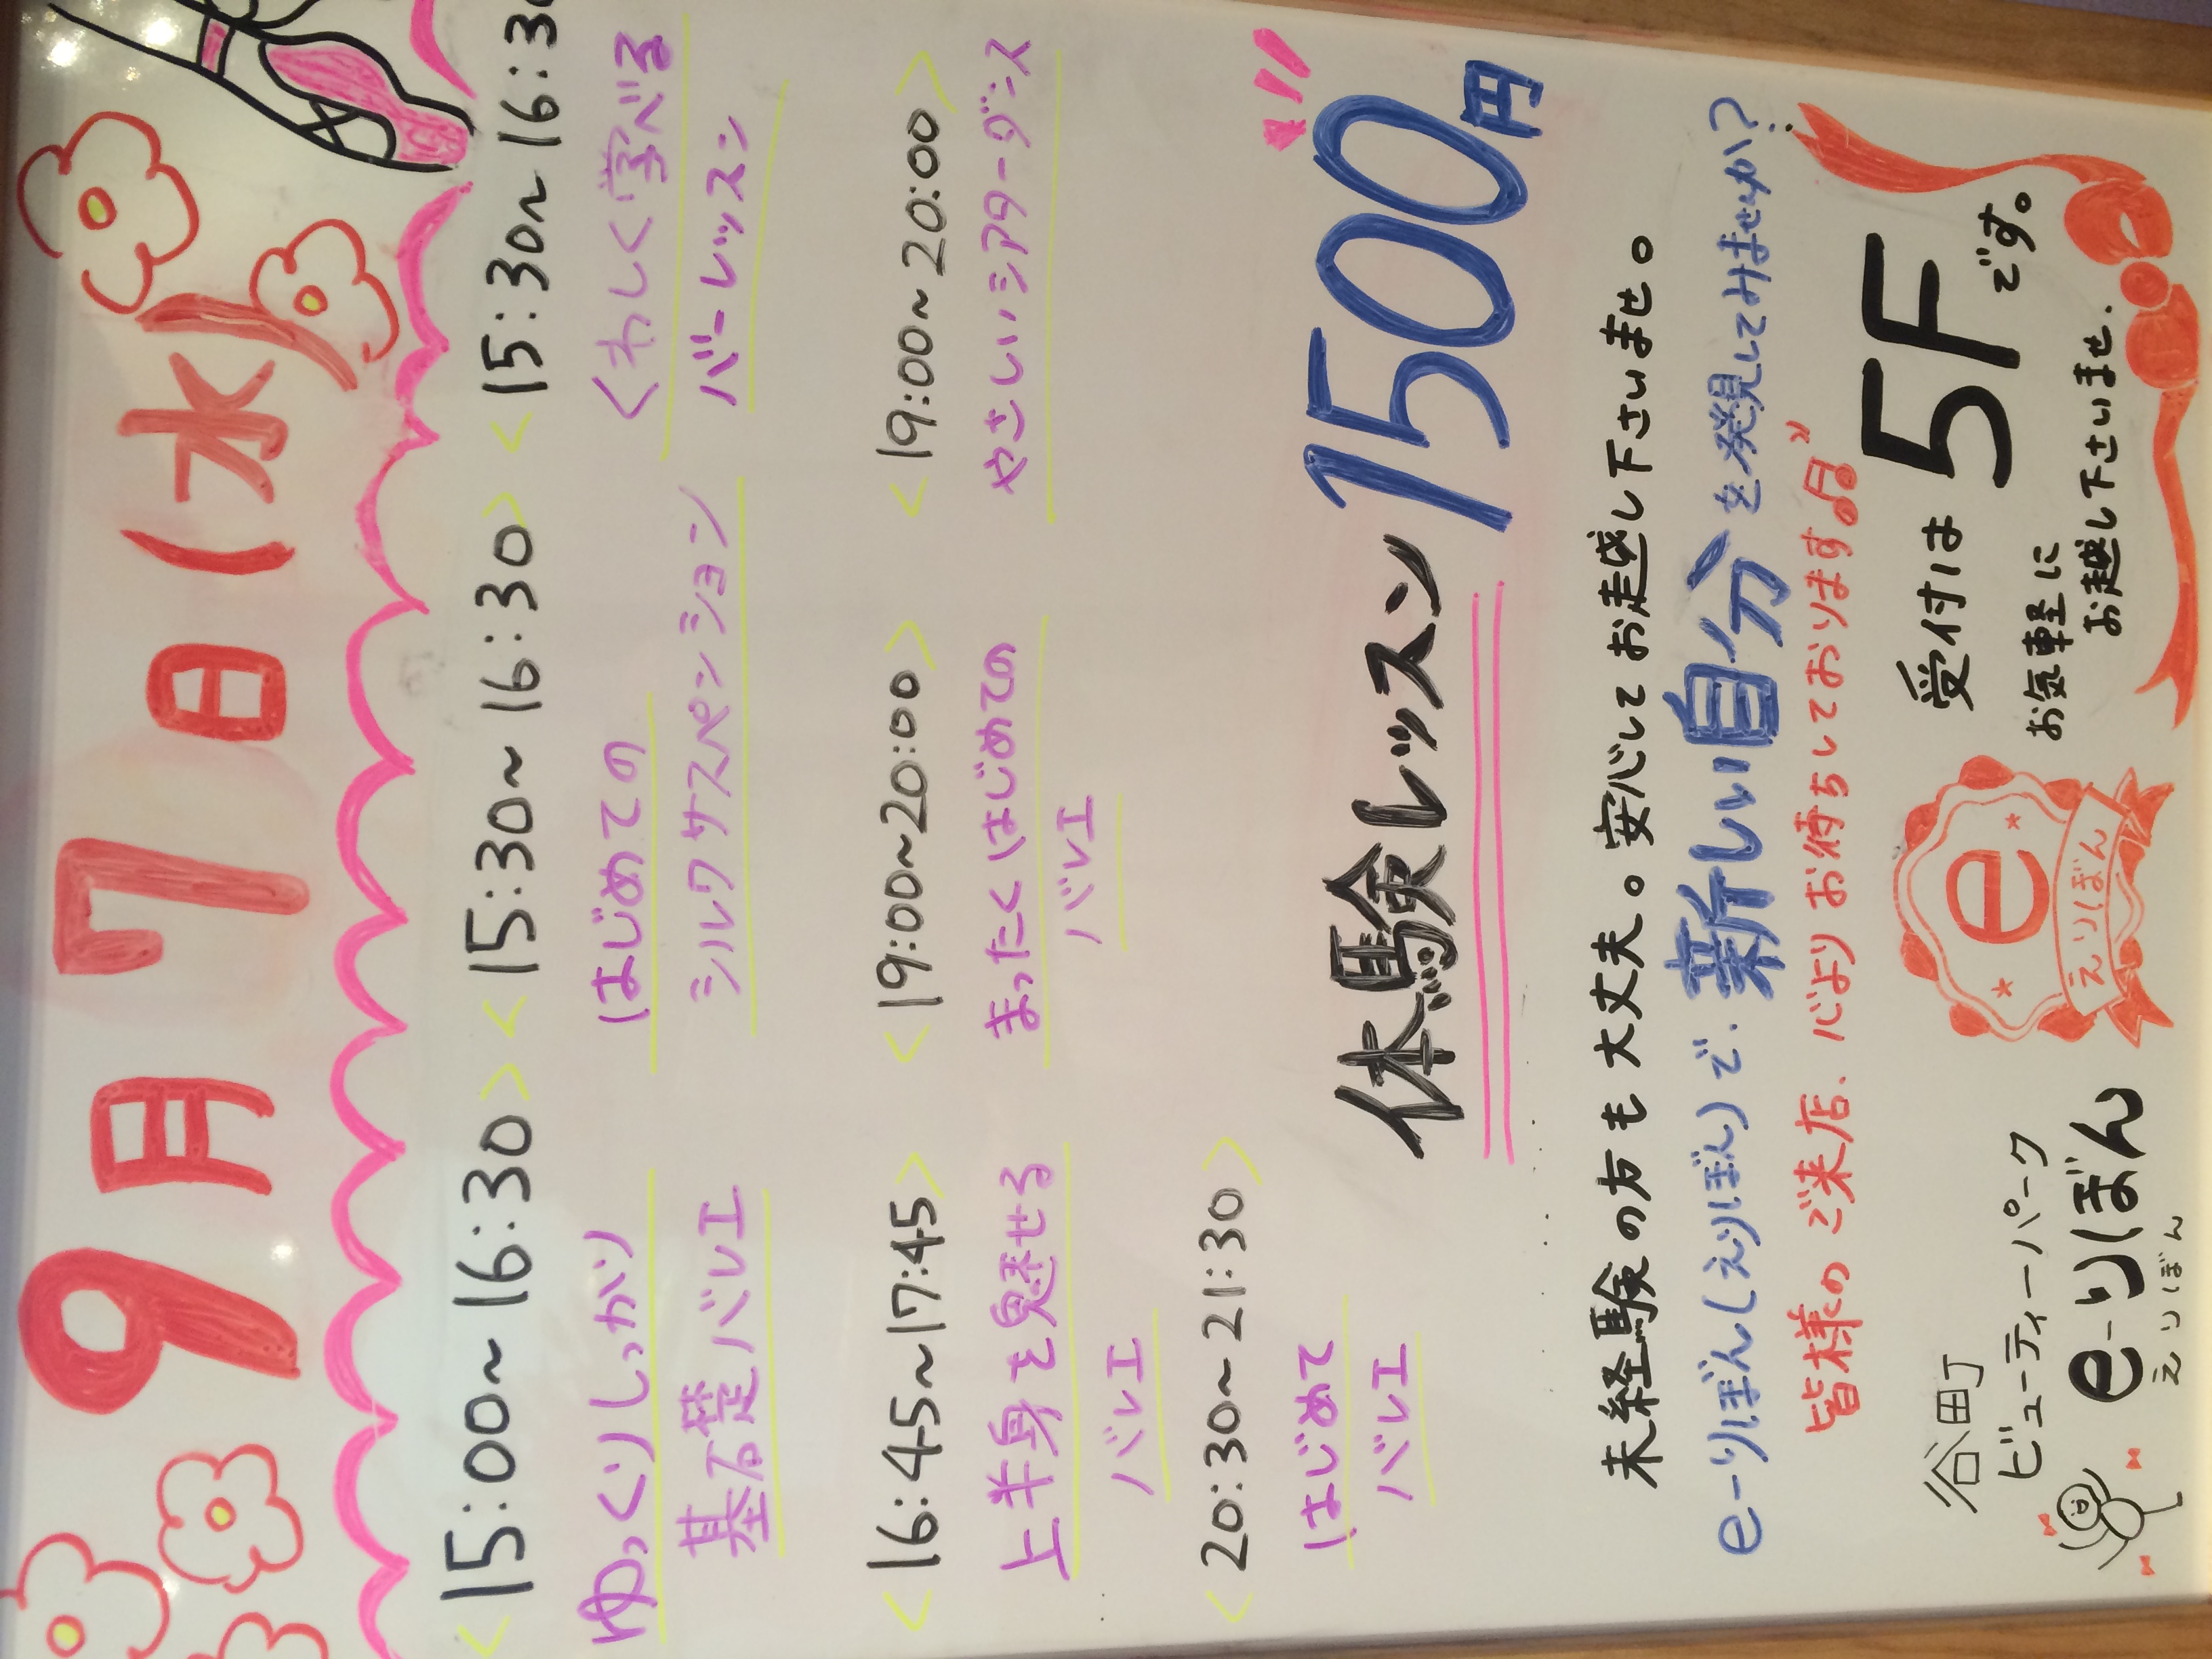 9月7日(水)
<15:00~16:30>
ゆっくりしっかり
基礎バレエ
<15:30~16:30>
はじめての
シルクサスペンション
<15:30~16:30
くわしく学べる
バーレッスン
<16:45~17:45>
上半身を魅せる
バレエ
<19:00~20:00>
まったくはじめての
バレエ
<19:00~20:00>
やさしいシアターダンス
<20:30~21:30>
はじめて
バレエ
体験レッスン1500円
未経験の方も大丈夫。安心してお越し下さいませ。
e-りぼん(えりぼん)で、新しい自分を発見してみませんか?
皆様のご来店、心よりお待ちしております♫"
谷町
ビューティーパーク
e-りぼん
えりぼん
e
えりぼん
受付は5Fです。
お気軽に
お越し下さいませ.